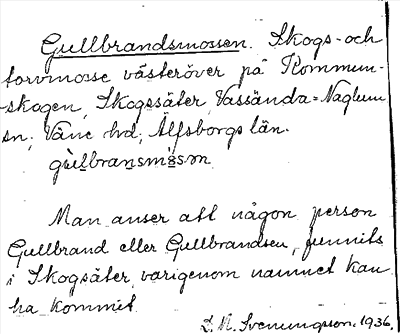 Gullbrandsmossen. Skogs- och
torvmosse västeröver på Kommun-
skogen, Skogssäter, Vassända=Naglum
sn; Väne hd, Älfsborgs län.
gùl̲bransmòs̲ən
Man anser att någon person
Gullbrand eller Gullbrandsen, funnits
i Skogsäter, varigenom namnet kan
ha kommit.
L. N. Svenungson. 1936.